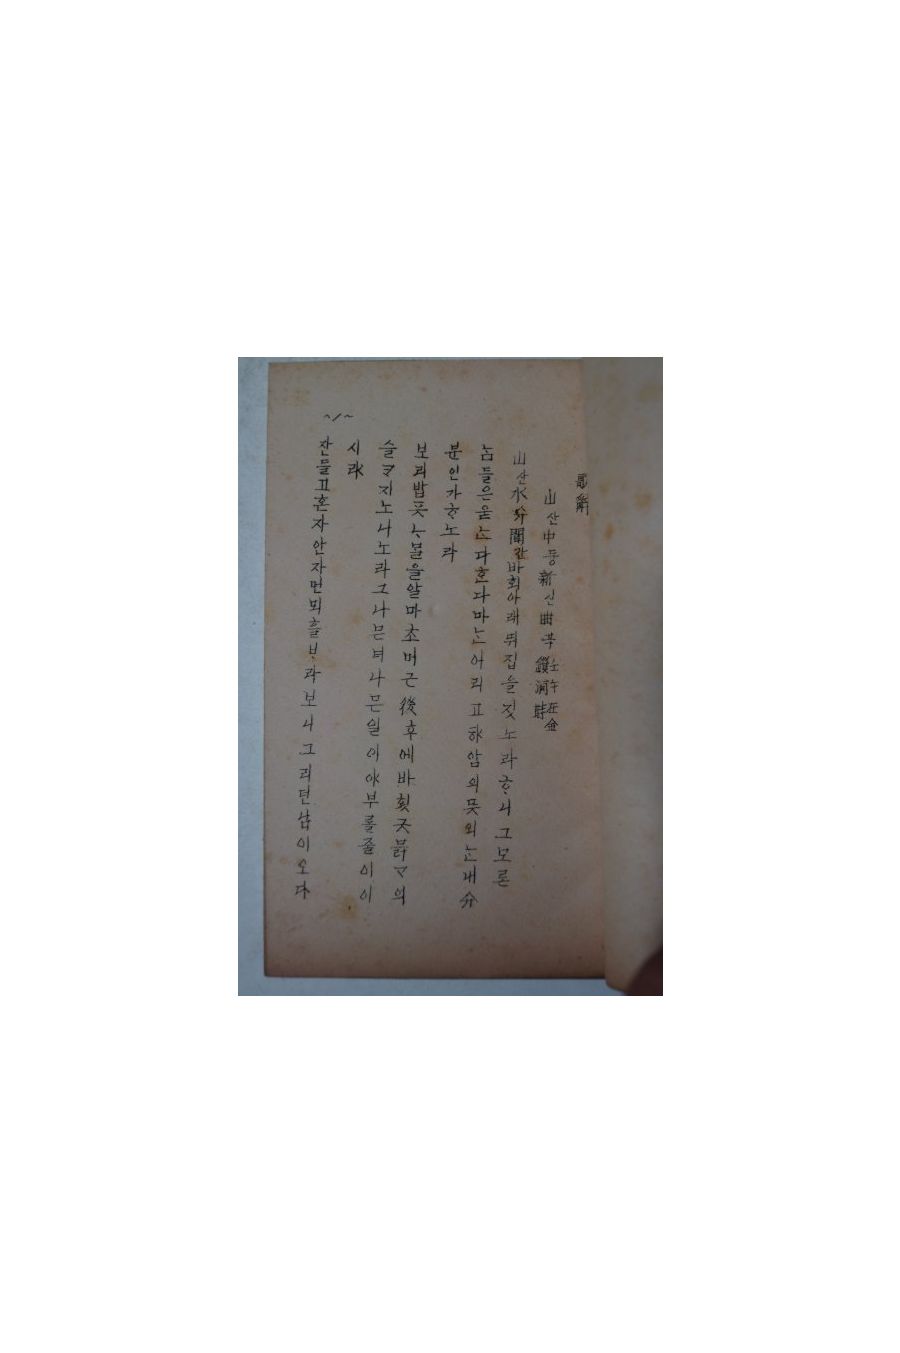 歌辭
山산中듕新신曲곡 壬午在金鎖洞時
山산水슈間간바회아래뛰집을짓노라ᄒᆞ니그모론
ᄂᆞᆷ들은욷ᄂᆞᆫ다ᄒᆞᆫ다마ᄂᆞᆫ어리고햐암의뜻의ᄂᆞᆫ내分
분인가ᄒᆞ노라
보리밥풋ᄂᆞ믈을알마초머근後후에바횟긋믉ᄀᆞ의
슬ᄏᆞ지노니노라그나믄녀나믄일이야부룰줄이이
시랴
잔들고혼자안자먼뫼흘ᄇᆞ라보니그리던님이오다